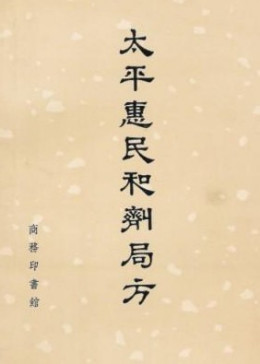 太平惠民和劑局方
商務印書館